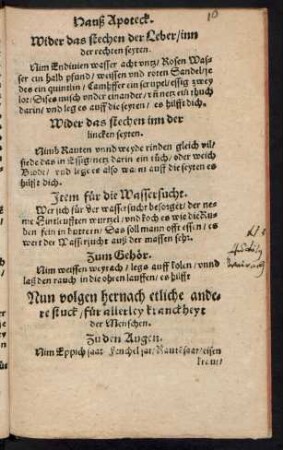 Hauß Apoteck.
10
Wider das stechen der Leber/inn
der rechten seyten.
Nim Endiuien wasser acht vntz/ Rosen Was-
ser ein halb pfund/ weissen vnd roten Sandel/ je
des ein quintlin/ Campffer ein scrupel/ essig zwey
lot/ Dises misch vnder einander/ vñ netz ein thuch
darin/ vnd leg es auff die seyten/ es hilfft dich.
Wider das stechen inn der
lincken seyten.
Nimb Rauten vnnd weyde rinden gleich vil/
siede das in Essig/ netz darin ein tuch/ oder weich
Brodt/ vnd lege es also warm auff die seyten es
hilfft dich.
Item für die Wassersucht.
Wer sich für der wassersucht besorget/ der ne-
me wurtzel/ vnd koch es wie die Rü-
ben fein in buttern/ Das soll mann offt essen/ es
wert der Wassersucht auß der massen sehr.
Zum Gehör.
Nim weissen weyrach/ legs auff kolen/ vnnd
laß den rauch in die ohren lauffen/ es hilfft
Nun volgen hernach etliche ande-
re stuck/ für allerley kranckheyt
der Menschen.
Zu den Augen.
Nim Eppich saat Fenchel sat/ Rautesaat/ eisen
kraut